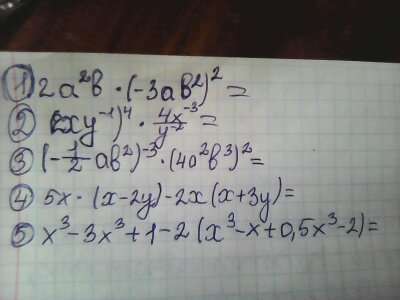 ① 2a²b · (-3ab²)² =
② (2xy⁻¹)⁴ · 4x⁻³/y⁻² =
③ (-1/2 ab²)⁻³ · (4a²b³)² =
④ 5x · (x-2y) - 2x(x+3y) =
⑤ x³ - 3x³ + 1 - 2(x³ - x + 0,5x³ - 2) =